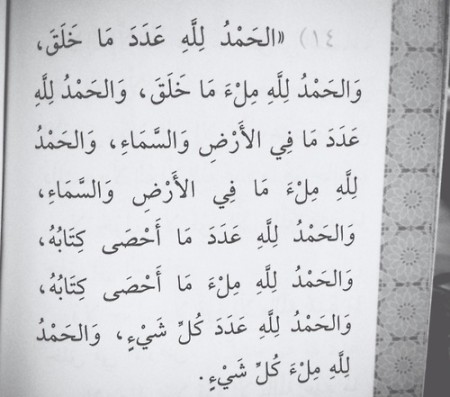 ١٤) «الحَمْدُ لِلَّهِ عَدَدَ مَا خَلَقَ،
وَالحَمْدُ لِلَّهِ مِلْءَ مَا خَلَقَ، وَالحَمْدُ لِلَّهِ
عَدَدَ مَا فِي الأَرْضِ وَالسَّمَاءِ، وَالحَمْدُ
لِلَّهِ مِلْءَ مَا فِي الأَرْضِ وَالسَّمَاءِ،
وَالحَمْدُ لِلَّهِ عَدَدَ مَا أَحْصَى كِتَابُهُ،
وَالحَمْدُ لِلَّهِ مِلْءَ مَا أَحْصَى كِتَابُهُ،
وَالحَمْدُ لِلَّهِ عَدَدَ كُلِّ شَيْءٍ، وَالحَمْدُ
لِلَّهِ مِلْءَ كُلِّ شَيْءٍ.